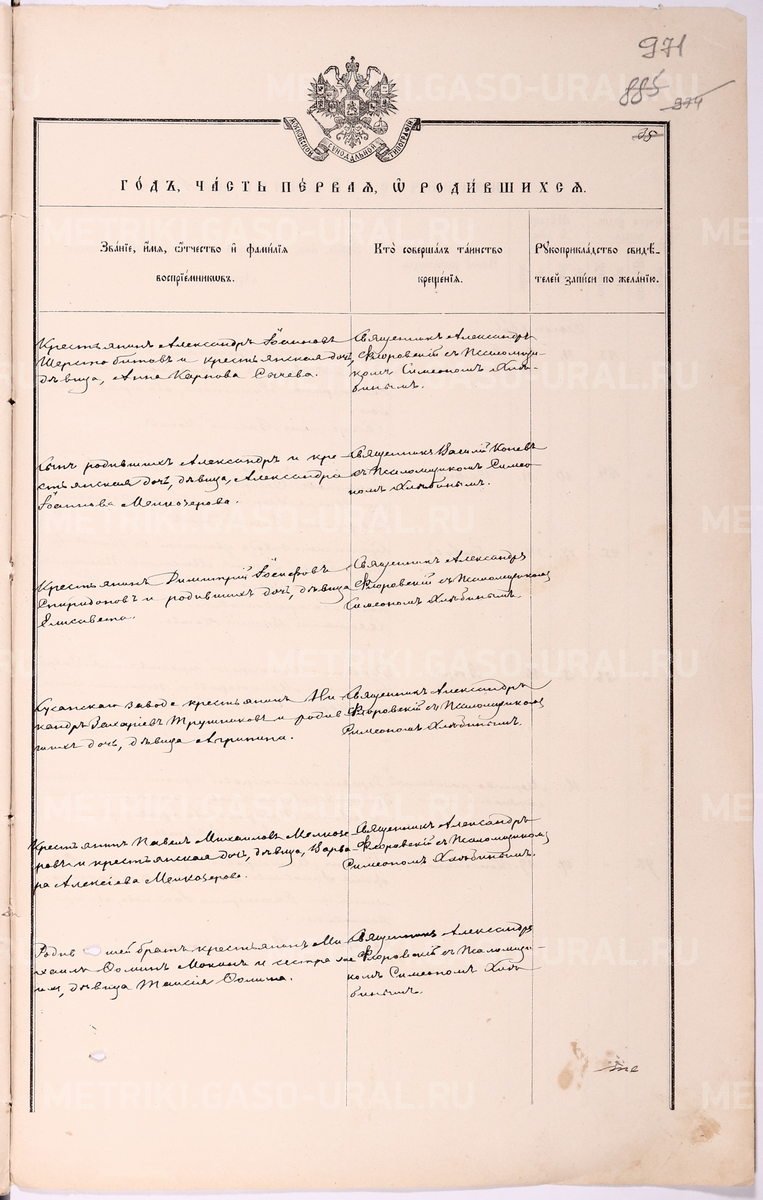 971
885 974
МОСКОВСКОЙ СѴНОДАЛЬНОЙ ТИПОГРАФІИ
35
ГО́ДЪ, ЧА́СТЬ ПЕ́РВАЯ, Ѡ҆ РОДИ́ВШИХСЯ.
Зва́ніе, и҆́мя, ѻ҆́тчество и҆ фами́лія
воспріе́мниковъ.
Кто̀ соверша́лъ та́инство
креще́нія.
Рꙋкоприкла́дство свидѣ́-
телей за́писи по жела́нію.
Крестьянинъ Александръ Іоанновъ
Шерстобитовъ и крестьянская дочь,
дѣвица, Анна Карпова Сычева.
Священникъ Александръ
Флоровскій съ Псаломщи-
комъ Симеономъ Хлѣ-
бинымъ.
Сынъ родившихъ Александръ и кре-
стьянская дочь, дѣвица, Александра
Іоаннова Мелкозерова.
Священникъ Василій Коневъ
съ Псаломщикомъ Симео-
номъ Хлѣбинымъ.
Крестьянинъ Димитрій Іосифовъ
Спиридоновъ и родившихъ дочь, дѣвица
Елисавета.
Священникъ Александръ
Флоровскій съ Псаломщикомъ
Симеономъ Хлѣбинымъ.
завода крестьянинъ Ни-
кандръ Захаріевъ Трушниковъ и родив-
шихъ дочь, дѣвица Агрипина.
Священникъ Александръ
Флоровскій съ Псаломщикомъ
Симеономъ Хлѣбинымъ.
Крестьянинъ Павелъ Михаиловъ Мелкозе-
ровъ и крестьянская дочь, дѣвица, Варва-
ра Алексіева Мелкозерова.
Священникъ Александръ
Флоровскій съ Псаломщикомъ
Симеономъ Хлѣбинымъ.
Родившей братъ крестьянинъ Ми-
хаилъ Ѳоминъ Мокинъ и сестра
дѣвица Таисія Ѳомина.
Священникъ Александръ
Флоровскій съ Псаломщи-
комъ Симеономъ Хлѣ-
бинымъ.
METRIKI.GASO-URAL.RU